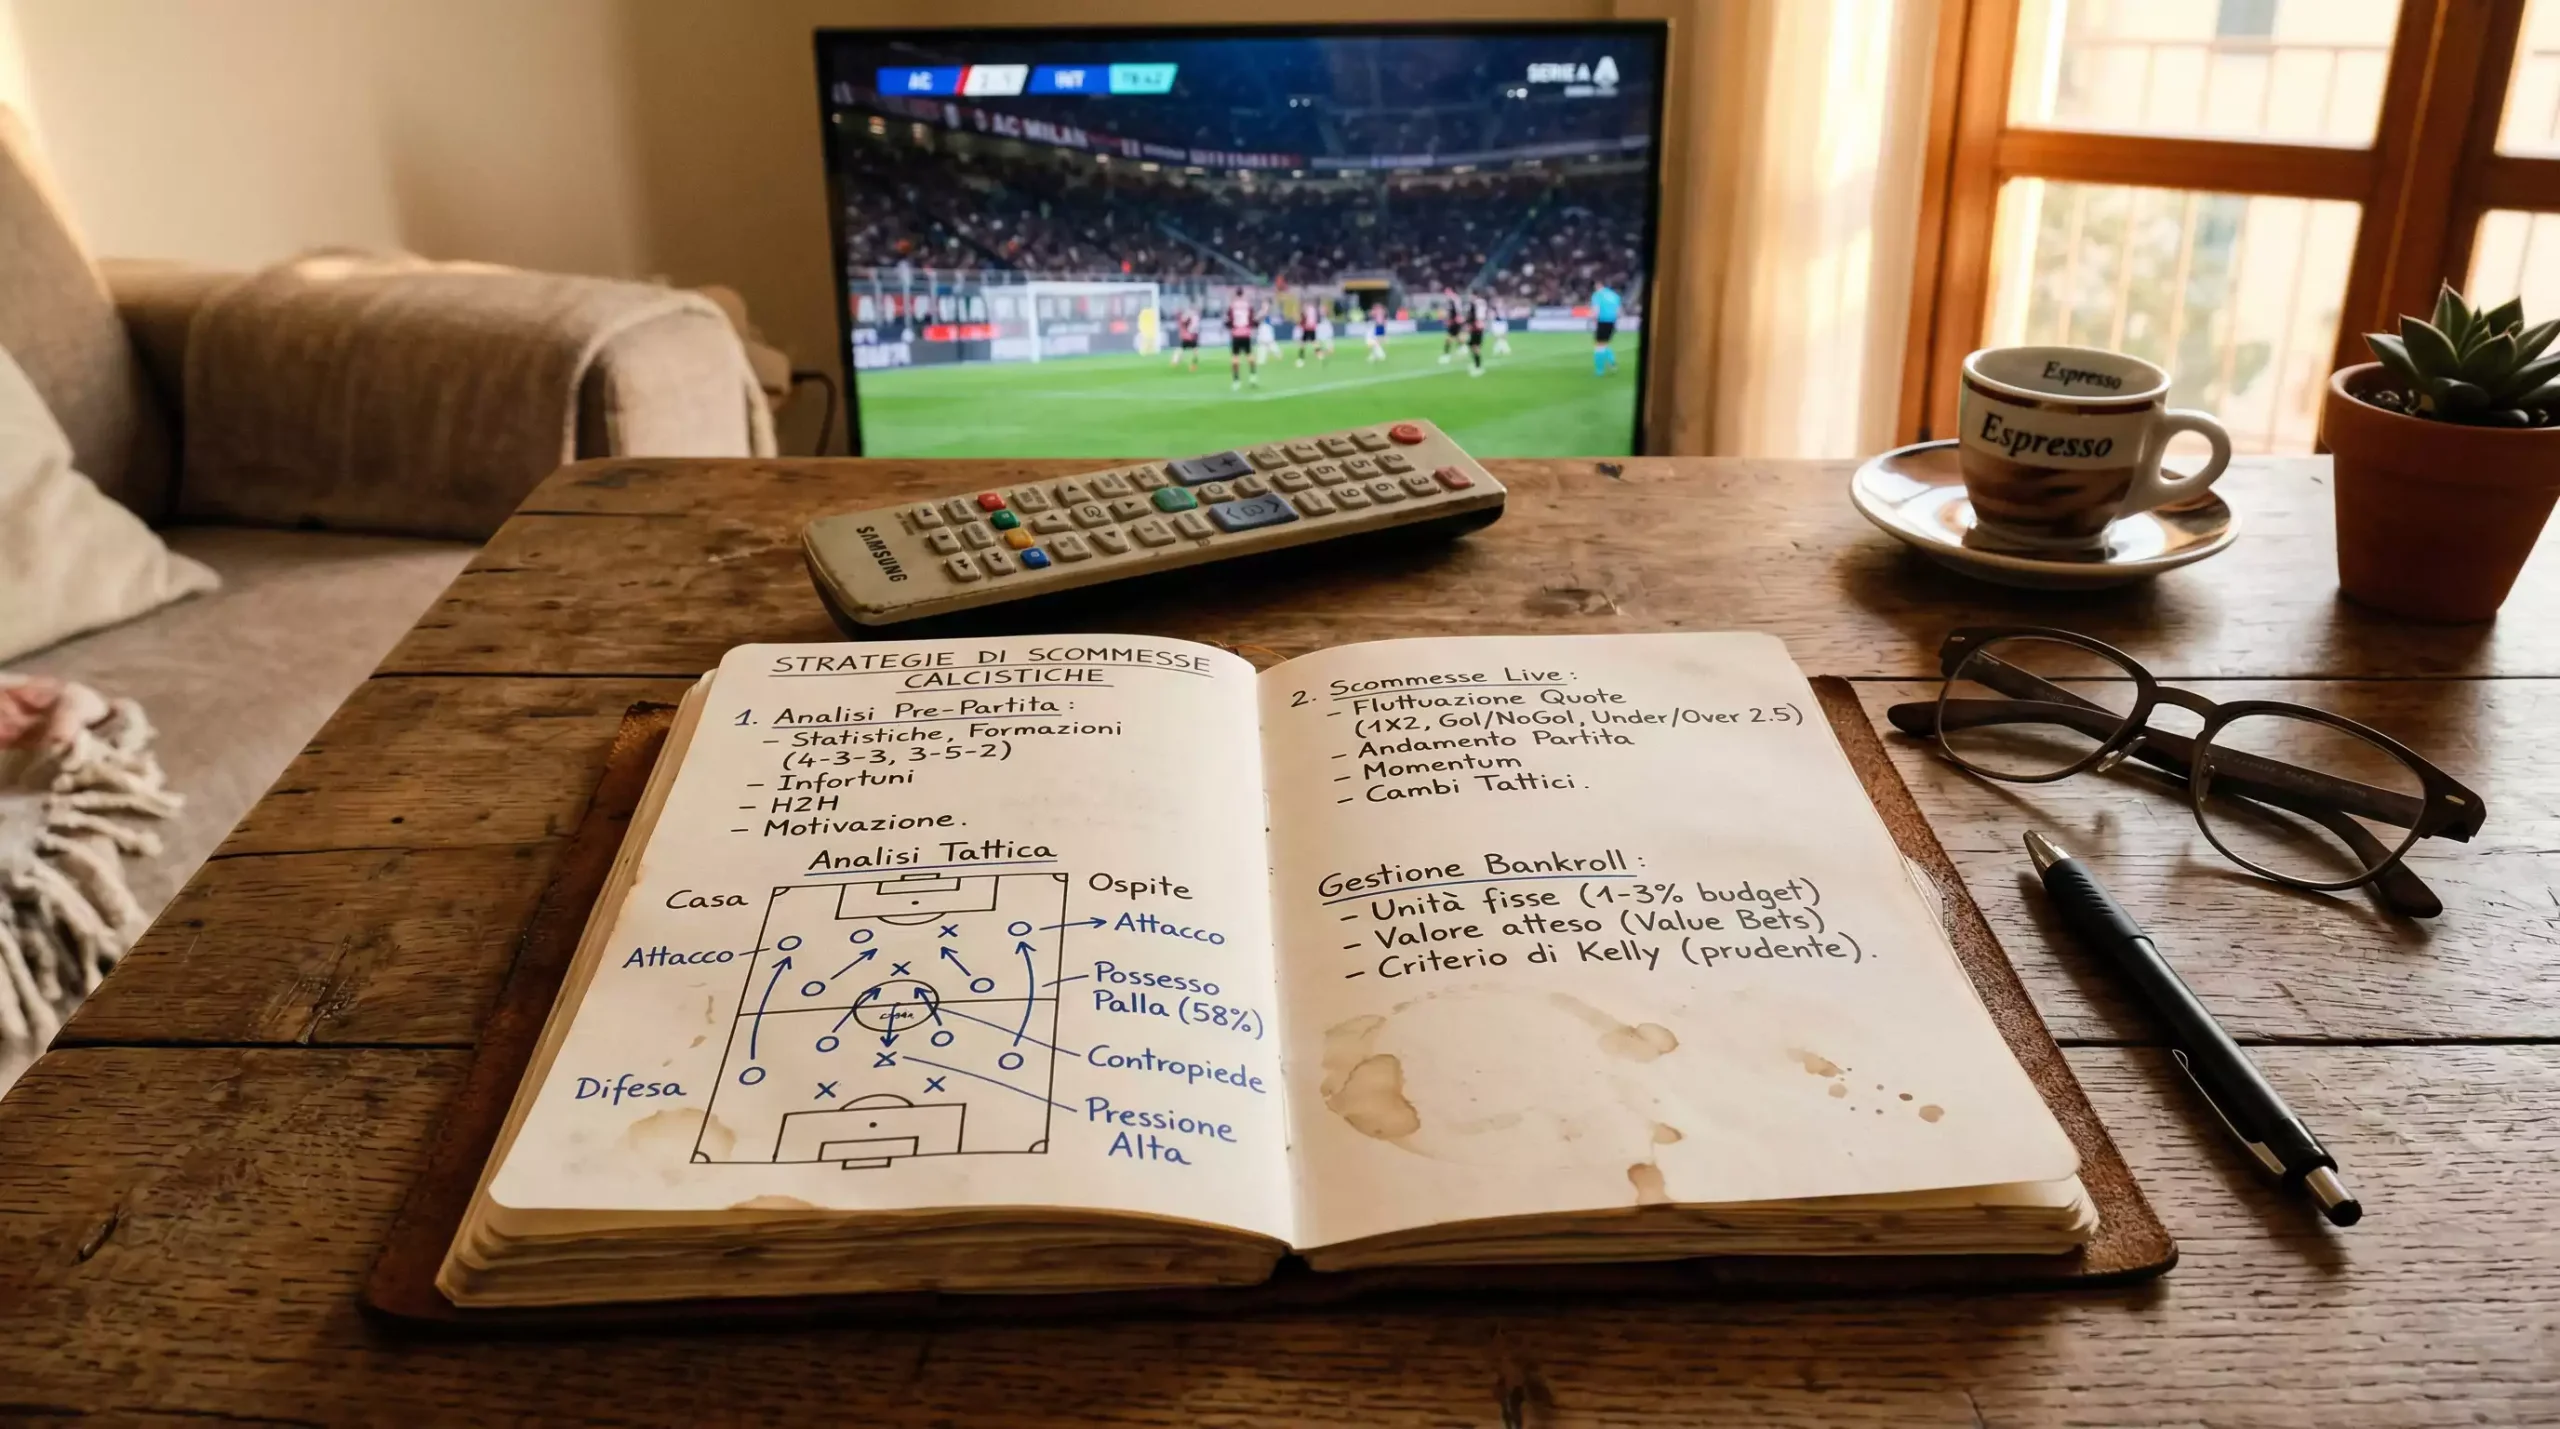 SERIE A
AC MILAN
SAMSUNG
Espresso
Espresso
STRATEGIE DI SCOMMESSE
CALCISTICHE
1. Analisi Pre-Partita :
- Statistiche, Formazioni
(4-3-3, 3-5-2)
- Infortuni
- H2H
- Motivazione.
Analisi Tattica
Casa
Ospite
Attacco
Attacco
Possesso
Palla (58%)
Contropiede
Difesa
Pressione
Alta
2. Scommesse Live :
- Fluttuazione Quote
(1X2, Gol/NoGol, Under/Over 2.5)
- Andamento Partita
- Momentum
- Cambi Tattici.
Gestione Bankroll :
- Unità fisse (1-3% budget)
- Valore atteso (Value Bets)
- Criterio di Kelly (prudente).